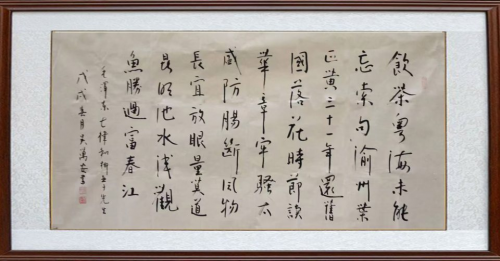 飲茶粵海未能
忘索句渝州葉
正黄三十一年還舊
國落花時節讀
華章牢騷太
盛防腸斷風物
長宜放眼量莫道
昆明池水淺觀
魚勝過富春江
毛澤東七律和柳亞子先生
戊戌春月